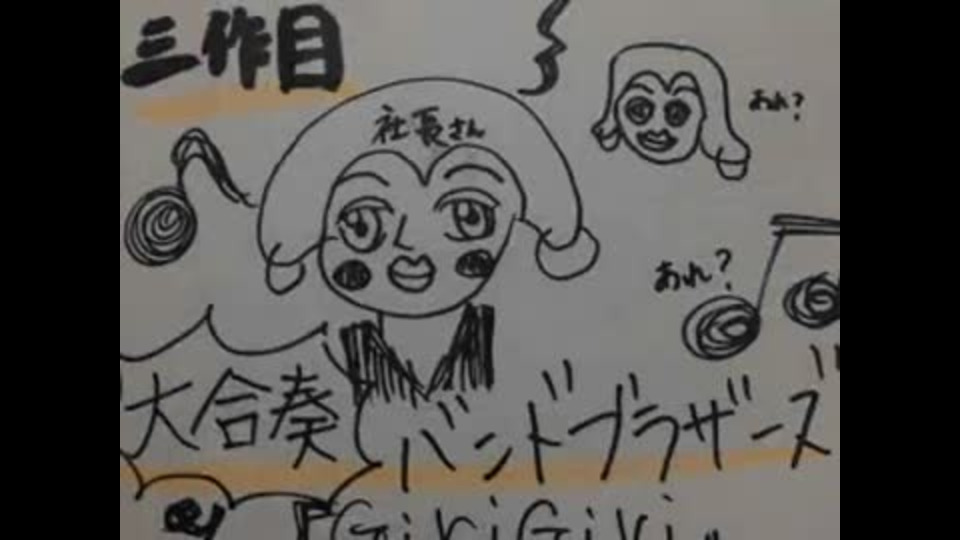 三作目
社長さん
あれ?
あれ?
大合奏
バンドブラザーズ
『GiriGiri』